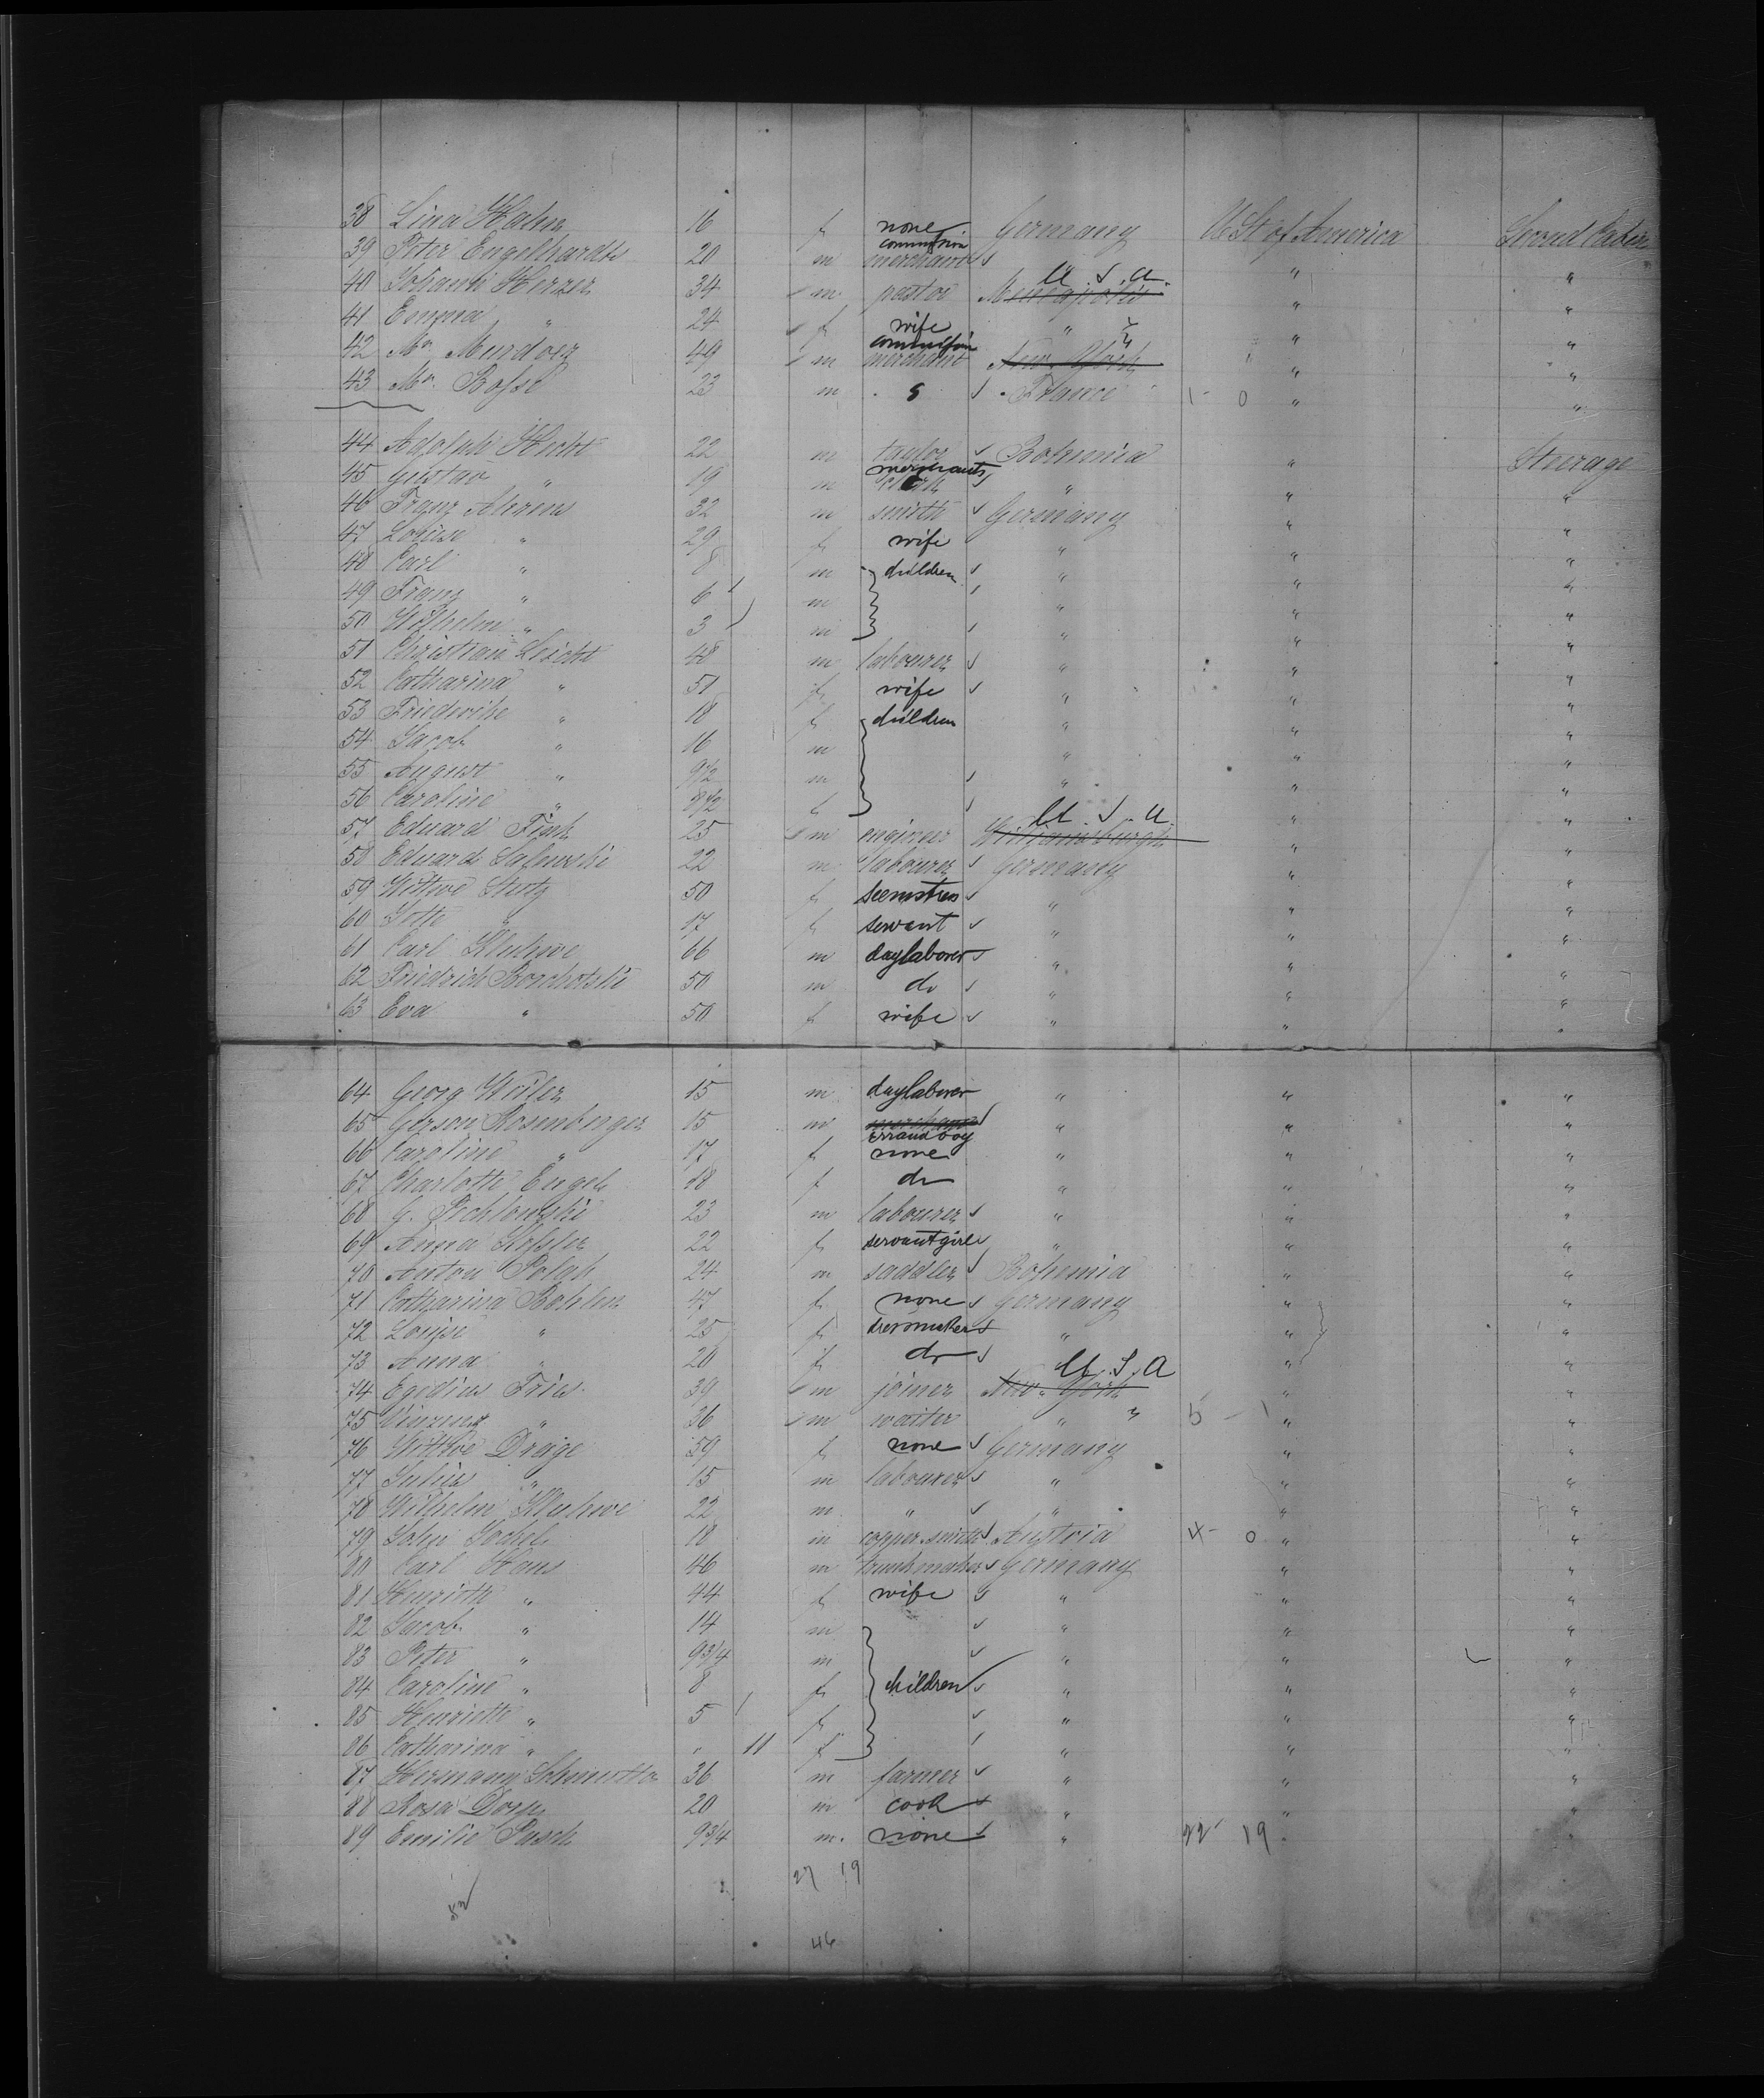 38 Lina Hahn 16 f none Germany U St of America Second Cabin
39 Peter Engelhardt 20 m commission merchant " " "
40 Johann Herzer 34 m pastor U.S.A. " "
41 Emma " 24 f wife " " " "
42 Mr. Murdoez 49 m commission merchant New York " " "
43 Mr. Bosse 23 m s France 1 - 0 " "
44 Adolph Hecht 22 m taylor Bohemia " Steerage
45 Gustav " 19 m merchants clerk " " "
46 Franz Ahrens 32 m smith Germany " "
47 Louise " 29 f wife " " "
48 Carl " 8 m children " " "
49 Franz " 6 m " " "
50 Wilhelm " 3 m " " "
51 Christian Leicht 48 m labourer " " "
52 Catharina " 51 f wife " " "
53 Friederike " 18 f children " " "
54 Jacob " 16 m " " "
55 August " 9 1/2 m " " "
56 Caroline " 8 1/2 f " "
57 Eduard Fink 25 m engineer Williamsburgh U.S.A. " "
58 Eduard 22 m labourer Germany " "
59 Wittwe 50 f seemstress " " "
60 " 17 f servant " " "
61 Carl Kluhwe 66 m daylaborer " " "
62 Friedrich 50 m do " " "
63 Eva " 50 f wife " " "
64 Georg Weiler 15 m daylaborer " " "
65 Gerson Rosenberger 15 m merchant errand boy " " "
66 Caroline " 17 f none " " "
67 Charlotte Engel 18 f do " " "
68 G. 23 m labourer " " "
69 Anna 22 f servantgirl " " "
70 Anton Polak 24 m saddler Bohemia " "
71 Catharina Bohlen 47 f none Germany " "
72 Louise " 25 f dressmaker " " "
73 Anna " 20 f do " "
74 Egidius Fries 39 m joiner New York U.S.A " "
75 " 36 m waiter " " 5 - 1 " "
76 Wittwe Dräge 59 f none Germany " "
77 Julius " 15 m labourer " " "
78 Wilhelm Kluhwe 22 m " " " "
79 John 18 m copper smith Austria 4 - 0 " "
80 Carl Hans 46 m trunkmaker Germany " "
81 Henriette " 44 f wife " " "
82 Jacob " 14 m " " "
83 Peter " 9 3/4 m " " "
84 Caroline " 8 f children " " "
85 Henriette " 5 f " " "
86 Catharina " " 11 f " " "
87 Hermann 36 m farmer " " "
88 Rosa 20 m cook " " "
89 Emilie Pasch 9 3/4 m. none " 22 19 "
27 19
46